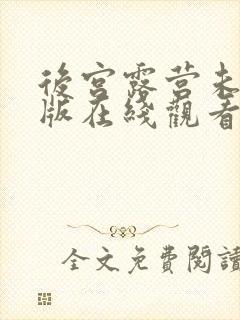 後宮露营未
版在綫觀看
全文免費閱讀